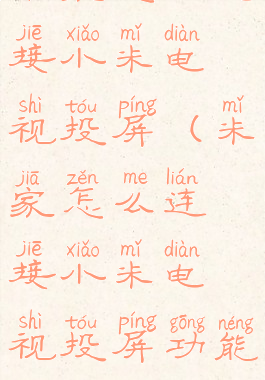 jiē xiǎo mǐ diàn
接小米电
shì tóu píng mǐ
视投屏（米
jiā zěn me lián
家怎么连
jiē xiǎo mǐ diàn
接小米电
shì tóu píng gōng néng
视投屏功能